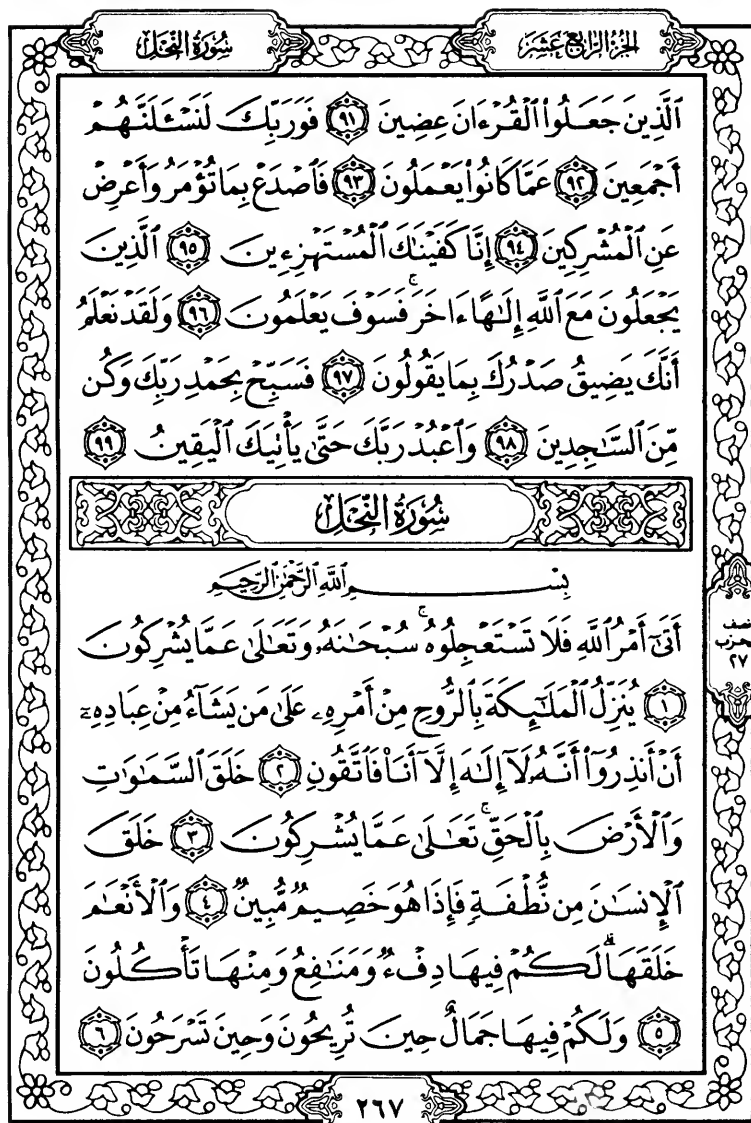 الجزء الرابع عشر
سورة النحل
ٱلَّذِينَ جَعَلُوا۟ ٱلْقُرْءَانَ عِضِينَ ٩١ فَوَرَبِّكَ لَنَسْـَٔلَنَّهُمْ
أَجْمَعِينَ ٩٢ عَمَّا كَانُوا۟ يَعْمَلُونَ ٩٣ فَٱصْدَعْ بِمَا تُؤْمَرُ وَأَعْرِضْ
عَنِ ٱلْمُشْرِكِينَ ٩٤ إِنَّا كَفَيْنَـٰكَ ٱلْمُسْتَهْزِءِينَ ٩٥ ٱلَّذِينَ
يَجْعَلُونَ مَعَ ٱللَّهِ إِلَـٰهًا ءَاخَرَ ۚ فَسَوْفَ يَعْلَمُونَ ٩٦ وَلَقَدْ نَعْلَمُ
أَنَّكَ يَضِيقُ صَدْرُكَ بِمَا يَقُولُونَ ٩٧ فَسَبِّحْ بِحَمْدِ رَبِّكَ وَكُن
مِّنَ ٱلسَّـٰجِدِينَ ٩٨ وَٱعْبُدْ رَبَّكَ حَتَّىٰ يَأْتِيَكَ ٱلْيَقِينُ ٩٩
سُورَةُ النَّحْلِ
بِسْمِ ٱللَّهِ ٱلرَّحْمَـٰنِ ٱلرَّحِيمِ
أَتَىٰٓ أَمْرُ ٱللَّهِ فَلَا تَسْتَعْجِلُوهُ ۚ سُبْحَـٰنَهُۥ وَتَعَـٰلَىٰ عَمَّا يُشْرِكُونَ
١ يُنَزِّلُ ٱلْمَلَـٰٓئِكَةَ بِٱلرُّوحِ مِنْ أَمْرِهِۦ عَلَىٰ مَن يَشَآءُ مِنْ عِبَادِهِۦٓ
أَنْ أَنذِرُوٓا۟ أَنَّهُۥ لَآ إِلَـٰهَ إِلَّآ أَنَا۠ فَٱتَّقُونِ ٢ خَلَقَ ٱلسَّمَـٰوَٰتِ
وَٱلْأَرْضَ بِٱلْحَقِّ ۚ تَعَـٰلَىٰ عَمَّا يُشْرِكُونَ ٣ خَلَقَ
ٱلْإِنسَـٰنَ مِن نُّطْفَةٍ فَإِذَا هُوَ خَصِيمٌ مُّبِينٌ ٤ وَٱلْأَنْعَـٰمَ
خَلَقَهَا ۗ لَكُمْ فِيهَا دِفْءٌ وَمَنَـٰفِعُ وَمِنْهَا تَأْكُلُونَ
٥ وَلَكُمْ فِيهَا جَمَالٌ حِينَ تُرِيحُونَ وَحِينَ تَسْرَحُونَ ٦
نصف
الحزب
٢٧
٢٦٧